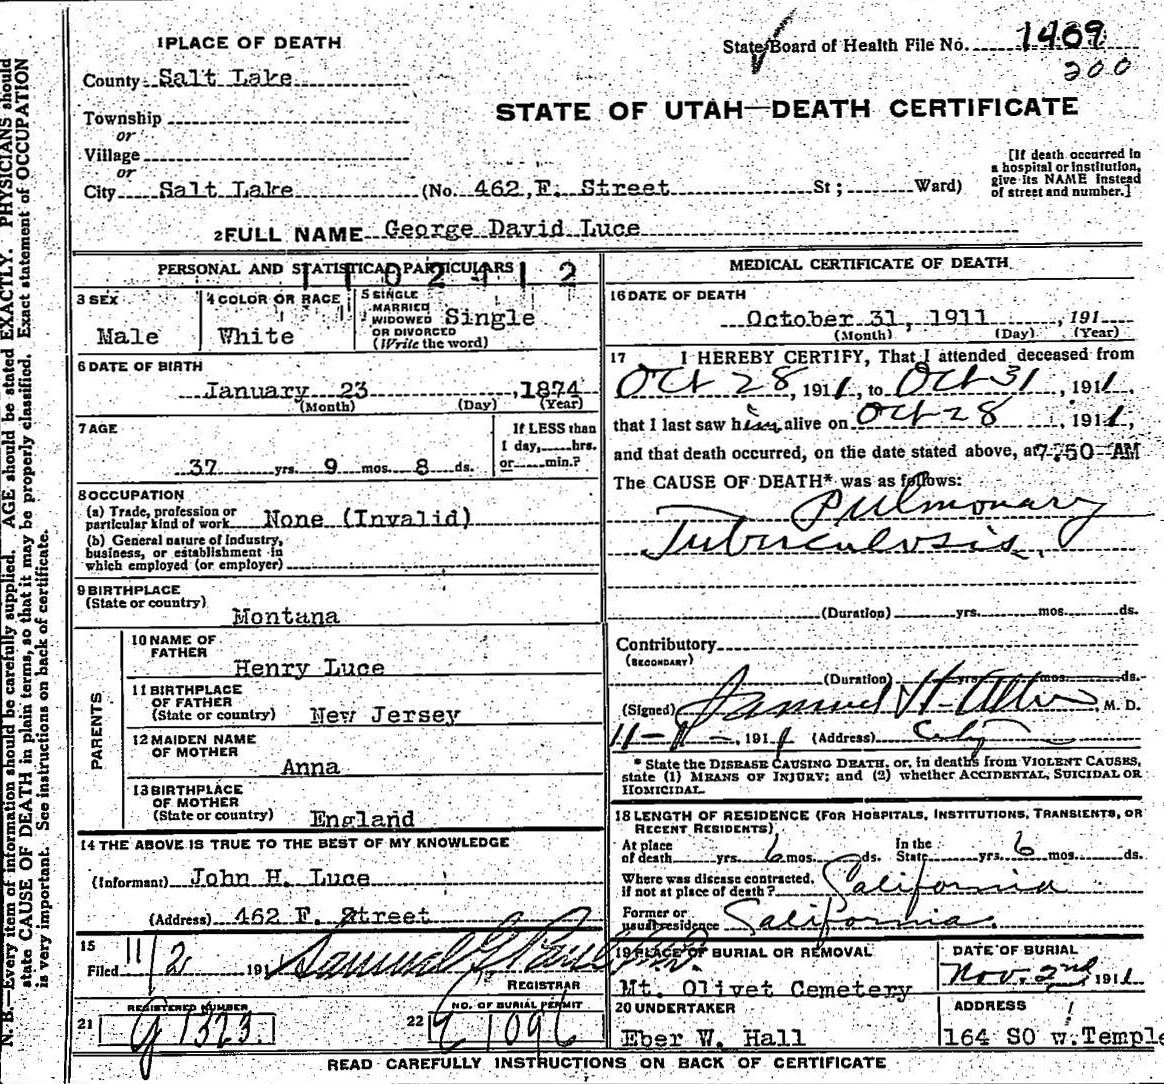 N. B.—Every item of information should be carefully supplied. AGE should be stated EXACTLY. PHYSICIANS should
state CAUSE OF DEATH in plain terms, so that it may be properly classified. Exact statement of OCCUPATION
is very important. See instructions on back of certificate.
State Board of Health File No. 1409
200
STATE OF UTAH—DEATH CERTIFICATE
1 PLACE OF DEATH
County Salt Lake
Township
or
Village
or
City Salt Lake (No. 462, E. Street St; Ward)
[If death occurred in
a hospital or institution,
give its NAME instead
of street and number.]
2 FULL NAME George David Luce
PERSONAL AND STATISTICAL PARTICULARS
3 SEX
Male
4 COLOR OR RACE
White
5 SINGLE
MARRIED
WIDOWED
OR DIVORCED
(Write the word)
Single
6 DATE OF BIRTH
January 23, 1874
(Month) (Day) (Year)
7 AGE
37 yrs. 9 mos. 8 ds.
If LESS than
1 day, hrs.
or min.?
8 OCCUPATION
(a) Trade, profession or
particular kind of work None (Invalid)
(b) General nature of Industry,
business, or establishment in
which employed (or employer)
9 BIRTHPLACE
(State or country)
Montana
PARENTS
10 NAME OF
FATHER
Henry Luce
11 BIRTHPLACE
OF FATHER
(State or country) New Jersey
12 MAIDEN NAME
OF MOTHER
Anna
13 BIRTHPLACE
OF MOTHER
(State or country) England
14 THE ABOVE IS TRUE TO THE BEST OF MY KNOWLEDGE
(Informant) John H. Luce
(Address) 462 E. Street
15
Filed 11/2 191
REGISTRAR
REGISTERED NUMBER
21 g 1323
NO. OF BURIAL PERMIT
22
MEDICAL CERTIFICATE OF DEATH
16 DATE OF DEATH
October 31, 1911, 191
(Month) (Day) (Year)
17 I HEREBY CERTIFY, That I attended deceased from
Oct 28, 1911, to Oct 31, 1911,
that I last saw him alive on Oct 28, 1911,
and that death occurred, on the date stated above, at 7.50 AM
The CAUSE OF DEATH* was as follows:
Pulmonary
Tuberculosis.
(Duration) yrs. mos. ds.
Contributory
(SECONDARY)
(Duration) yrs. mos. ds.
(Signed) Samuel H. Allen M. D.
191 (Address) City
* State the DISEASE CAUSING DEATH, or, in deaths from VIOLENT CAUSES,
state (1) MEANS OF INJURY; and (2) whether ACCIDENTAL, SUICIDAL OR
HOMICIDAL.
18 LENGTH OF RESIDENCE (FOR HOSPITALS, INSTITUTIONS, TRANSIENTS, OR
RECENT RESIDENTS)
At place
of death yrs. 6 mos. ds. In the
State yrs. 6 mos. ds.
Where was disease contracted,
if not at place of death? California
Former or
usual residence California.
19 PLACE OF BURIAL OR REMOVAL
Mt. Olivet Cemetery
DATE OF BURIAL
Nov. 2nd 1911
20 UNDERTAKER
Eber W. Hall
ADDRESS
164 SO w. Temple
READ CAREFULLY INSTRUCTIONS ON BACK OF CERTIFICATE